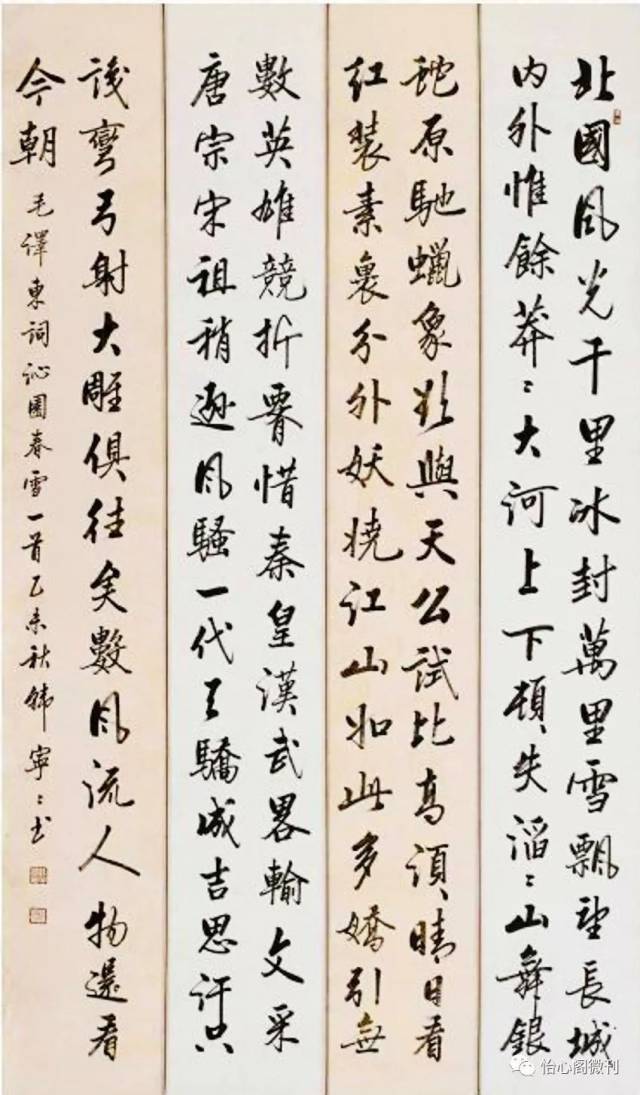 北國風光千里冰封萬里雪飄望長城
内外惟餘莽〻大河上下頓失滔〻山舞銀
蛇原馳蠟象欲與天公試比高須晴日看
紅裝素裹分外妖嬈江山如此多嬌引無
數英雄競折腰惜秦皇漢武畧輸文采
唐宗宋祖稍遜風騷一代天驕成吉思汗只
識彎弓射大雕俱往矣數風流人物還看
今朝 毛澤東詞沁園春雪一首乙未秋韓寧〻書
怡心阁微刊